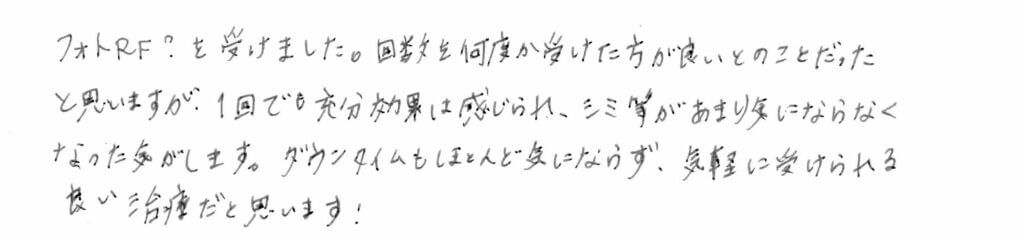 フォトRF?を受けました。回数を何度か受けた方が良いとのことだった
と思いますが、1回でも充分効果は感じられ、シミ等があまり気にならなく
なった気がします。ダウンタイムもほとんど気にならず、気軽に受けられる
良い治療だと思います!